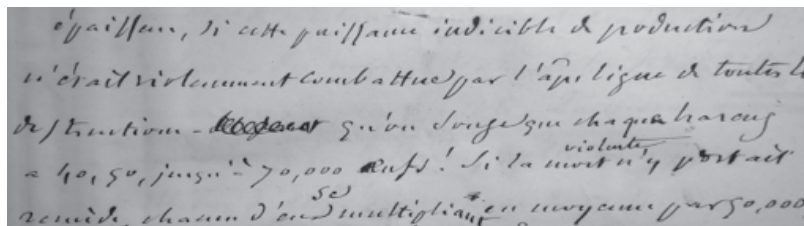 épaisseur, si cette puissance indicible de production
n'était violemment combattue par l'âpre ligue de toutes l
destructions - qu'on songe que chaque hareng
a 40, 50, jusqu'à 70,000 œufs! Si la mort violente n'y portait
remède, chacun d'eux se multipliant en moyenne par 50,000